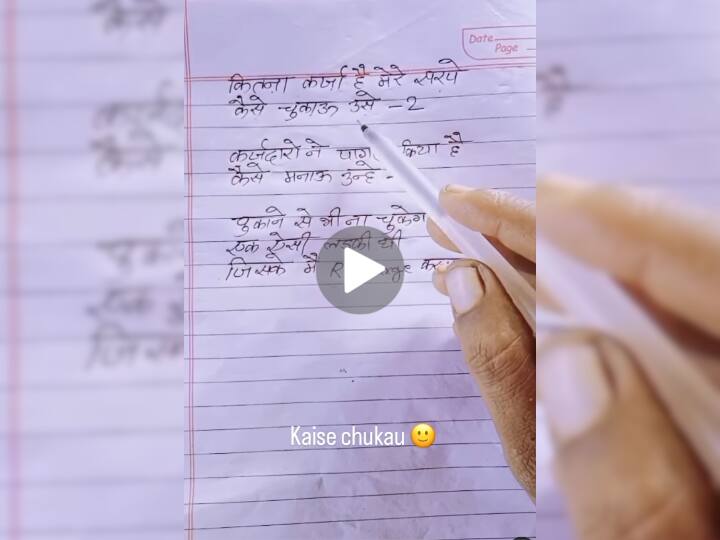 Date
Page
कितना कर्जा है मेरे सरपे
कैसे चुकाऊ उसे -2
कर्जदारो ने किया है
कैसे मनाऊ उन्हे -
चुकाने से भी ना
एक ऐसी लडकी थी
जिसके मै
Kaise chukau 🙂